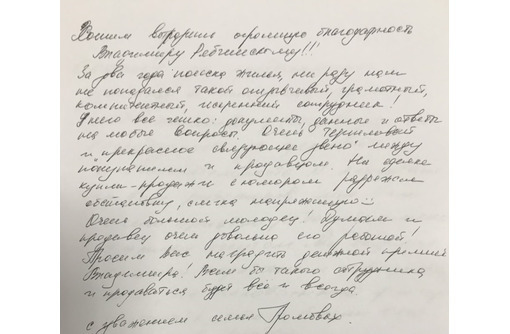 Хотим выразить огромную благодарность
Владимиру Ребчинскому!!!
За два года поиска жилья, ни разу нам
не попадался такой отзывчивый, грамотный,
компетентный, искренний сотрудник!
У него все четко: документы, данные и ответы
на любые вопросы. Очень терпеливый
и "прекрасное связующее звено" между
покупателем и продавцом. На сделке
купли-продажи с юмором разряжал
обстановку, слегка напряженную :)
Очень большой молодец! Думаем и
продавец очень довольна его работой!
Просим Вас наградить денежной премией
Владимира! Всем бы такого сотрудника
и продаваться будет всё и всегда.
С уважением семья